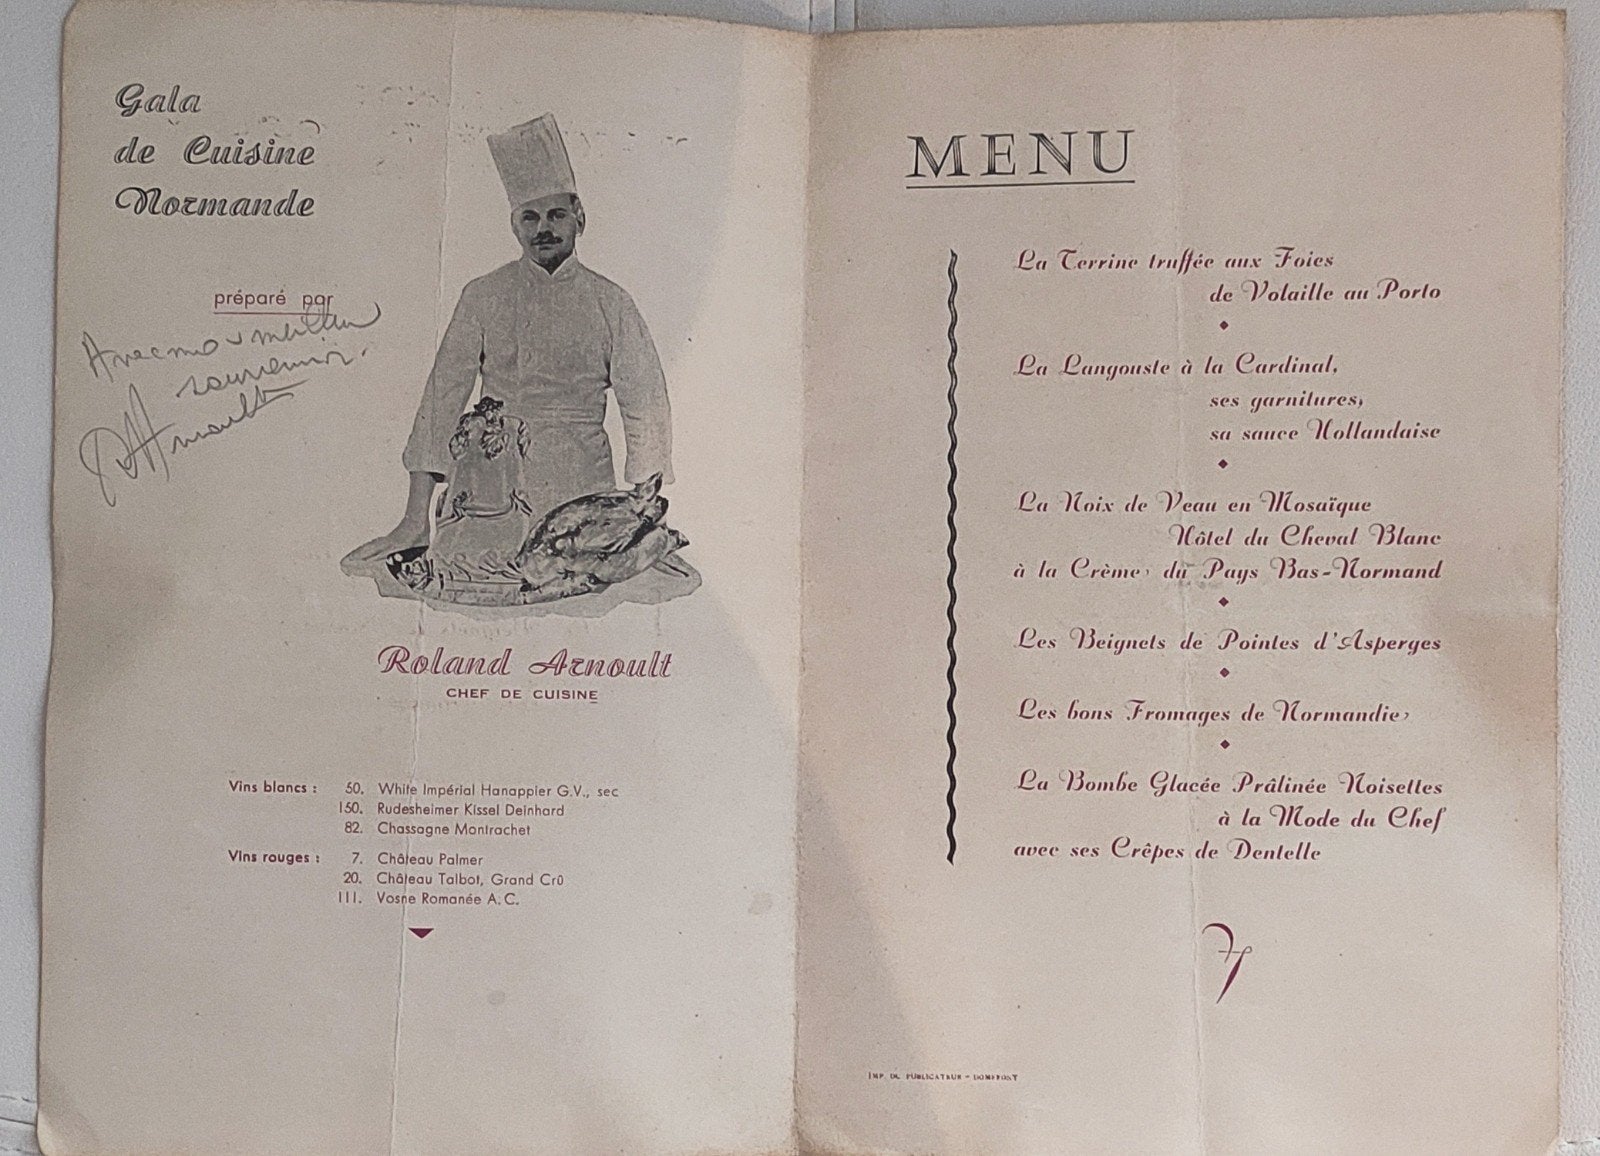 Gala
de Cuisine
Normande
préparé par
Avec mon meilleur
souvenir.
Arnoult
Roland Arnoult
CHEF DE CUISINE
Vins blancs : 50. White Impérial Hanappier G.V., sec
150. Rudesheimer Kissel Deinhard
82. Chassagne Montrachet
Vins rouges : 7. Château Palmer
20. Château Talbot, Grand Crû
111. Vosne Romanée A.C.
MENU
La Terrine truffée aux Foies
de Volaille au Porto
La Langouste à la Cardinal,
ses garnitures,
sa sauce Hollandaise
La Noix de Veau en Mosaïque
Hôtel du Cheval Blanc
à la Crème du Pays Bas-Normand
Les Beignets de Pointes d'Asperges
Les bons Fromages de Normandie
La Bombe Glacée Prâlinée Noisettes
à la Mode du Chef
avec ses Crêpes de Dentelle
IMP. DU PUBLICATEUR - DOMFRONT